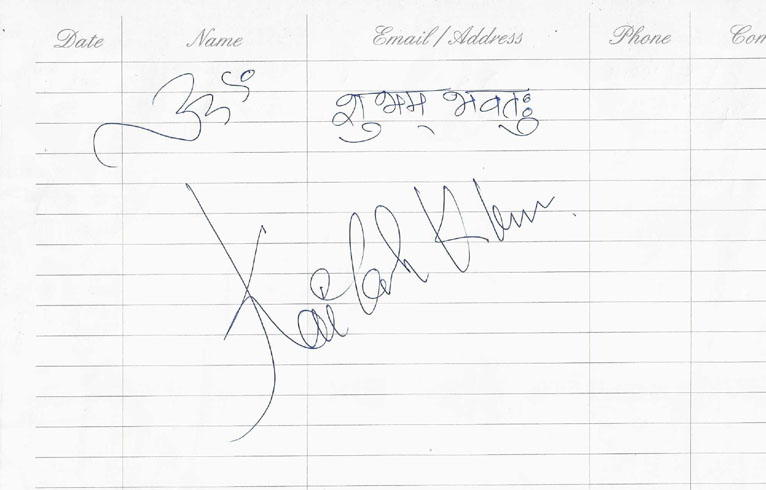 Date Name Email / Address Phone Com
ॐ शुभम् भवतुः
Kailash Kher